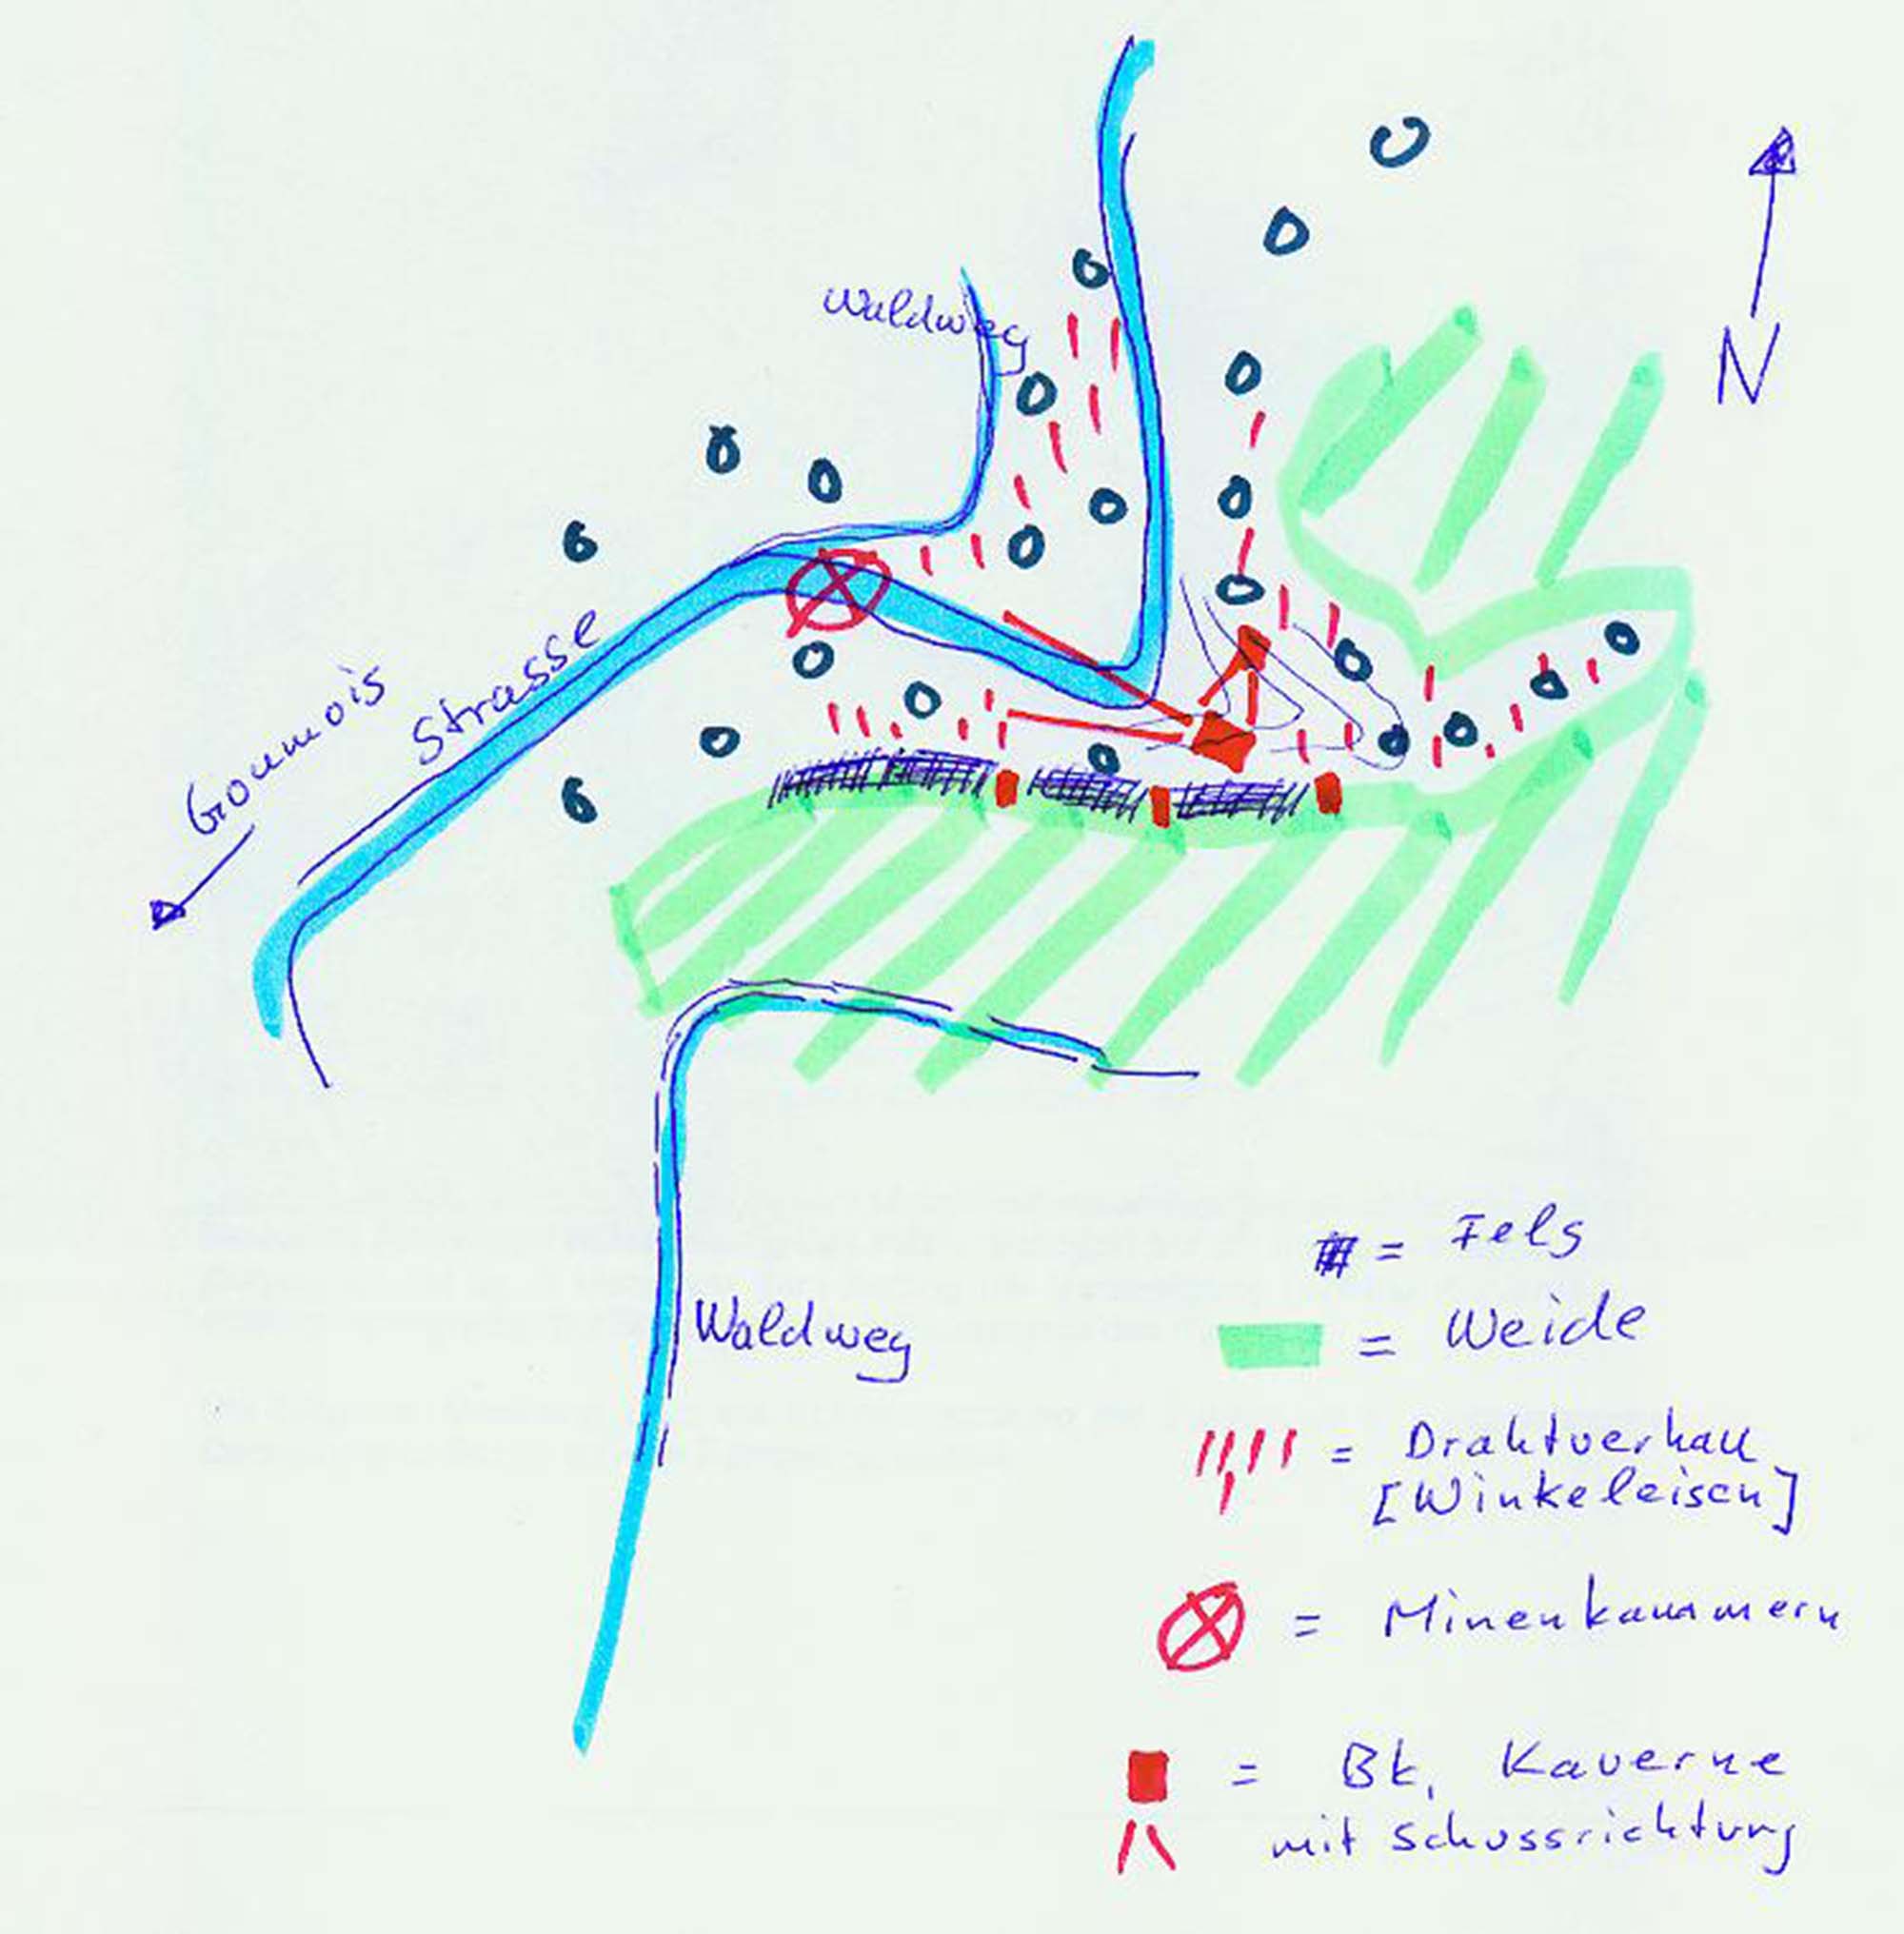 N
Waldweg
Strasse
Goumois
Waldweg
= Fels
= Weide
= Drahtverhau
[Winkeleisen]
= Minenkammern
= Bk, Kaverne
mit Schussrichtung